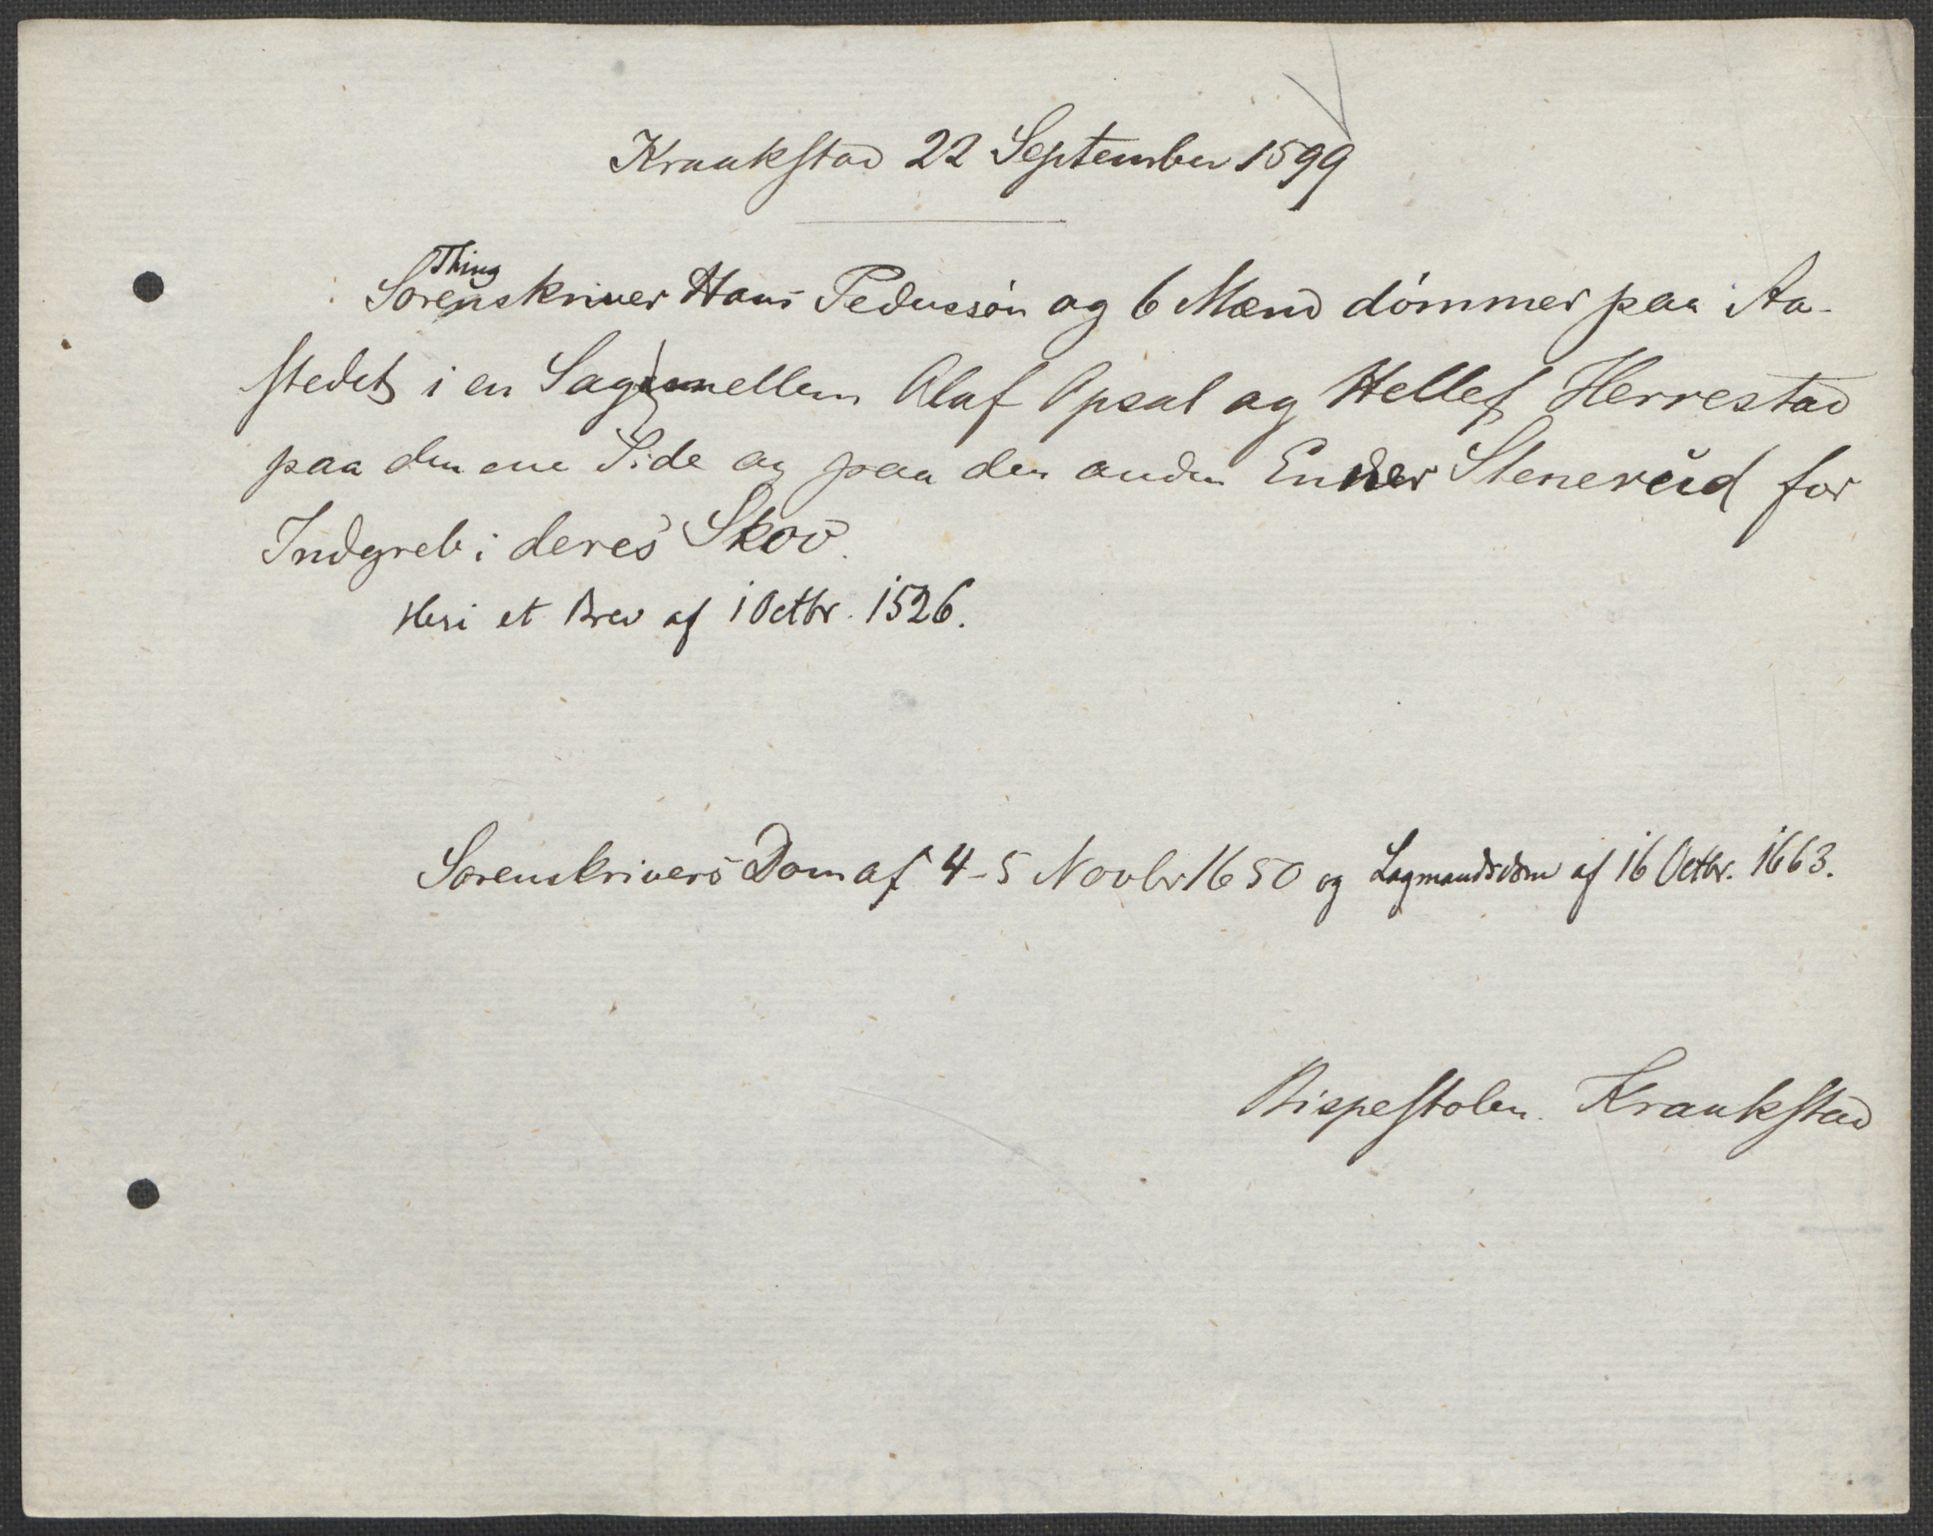 Kraakstad 22 September 1599
Thing
Sorenskriver Hans Pederssön og 6 Mænd dömmer paa Aa-
stedet i en Sag mellem Olaf Opsal og Hellef Herrestad
paa den ene Side og paa den anden Ender Stenerud for
Indgreb i deres Skov.
Heri et Brev af 1 Octbr. 1526.
Sorenskrivers Dom af 4-5 Novbr 1650 og Lagmandsdom af 16 Octbr. 1663.
Bispestolen. Kraakstad